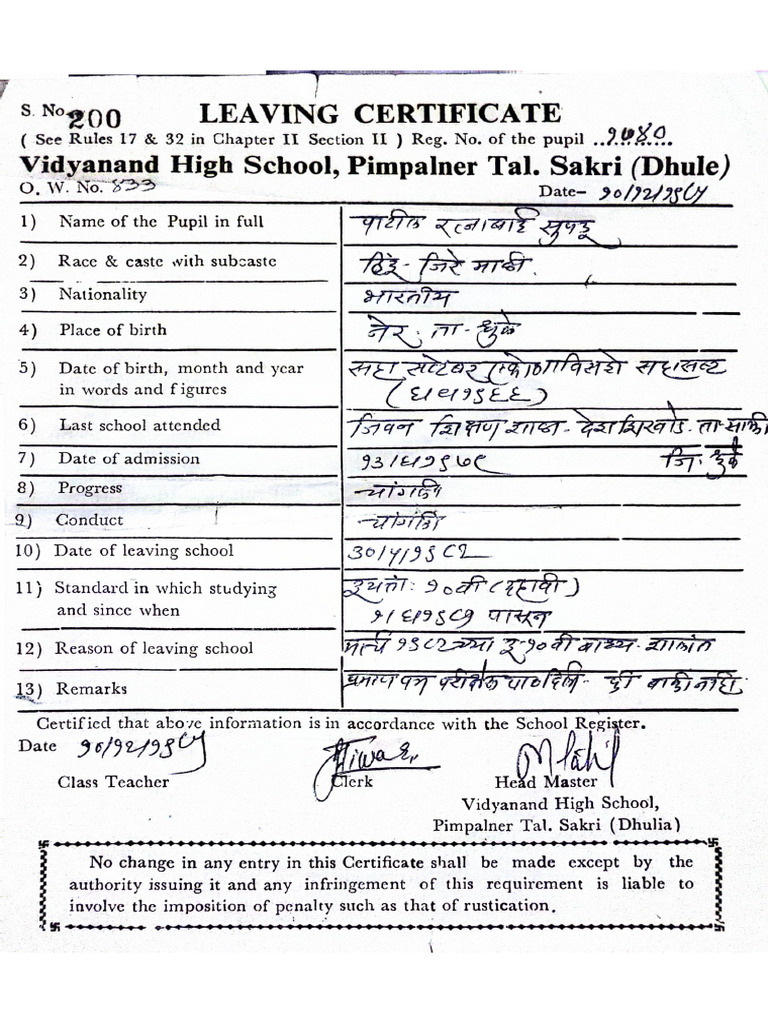 S. No. 200 LEAVING CERTIFICATE
( See Rules 17 & 32 in Chapter II Section II ) Reg. No. of the pupil ..१७४०..
Vidyanand High School, Pimpalner Tal. Sakri (Dhule)
O. W. No. ८३३ Date- १०/१२/१९८५
1) Name of the Pupil in full पाटील रत्नाबाई सुपडू
2) Race & caste with subcaste हिंदू - जिरे माळी.
3) Nationality भारतीय
4) Place of birth नेर. ता - धुळे
5) Date of birth, month and year सहा सप्टेंबर एकोणाविसशे सहासष्ट
in words and figures (६।९।१९६६)
6) Last school attended जिवन शिक्षण शाळा - देशशिरवाडे - ता - साक्री
7) Date of admission १३/६/१९७९ जि. धुळे
8) Progress चांगली
9) Conduct चांगली
10) Date of leaving school ३०/५/१९८२
11) Standard in which studying इयत्ता: १०वी (दहावी)
and since when १/६/१९८१ पासून
12) Reason of leaving school मार्च १९८२ च्या इ-१०वी बाह्य - शालांत
13) Remarks प्रमाणपत्र परीक्षेला पाठविले - फी बाकी नाही.
Certified that above information is in accordance with the School Register.
Date १०/१२/१९८५
Class Teacher Clerk Head Master
Vidyanand High School,
Pimpalner Tal. Sakri (Dhulia)
No change in any entry in this Certificate shall be made except by the
authority issuing it and any infringement of this requirement is liable to
involve the imposition of penalty such as that of rustication.